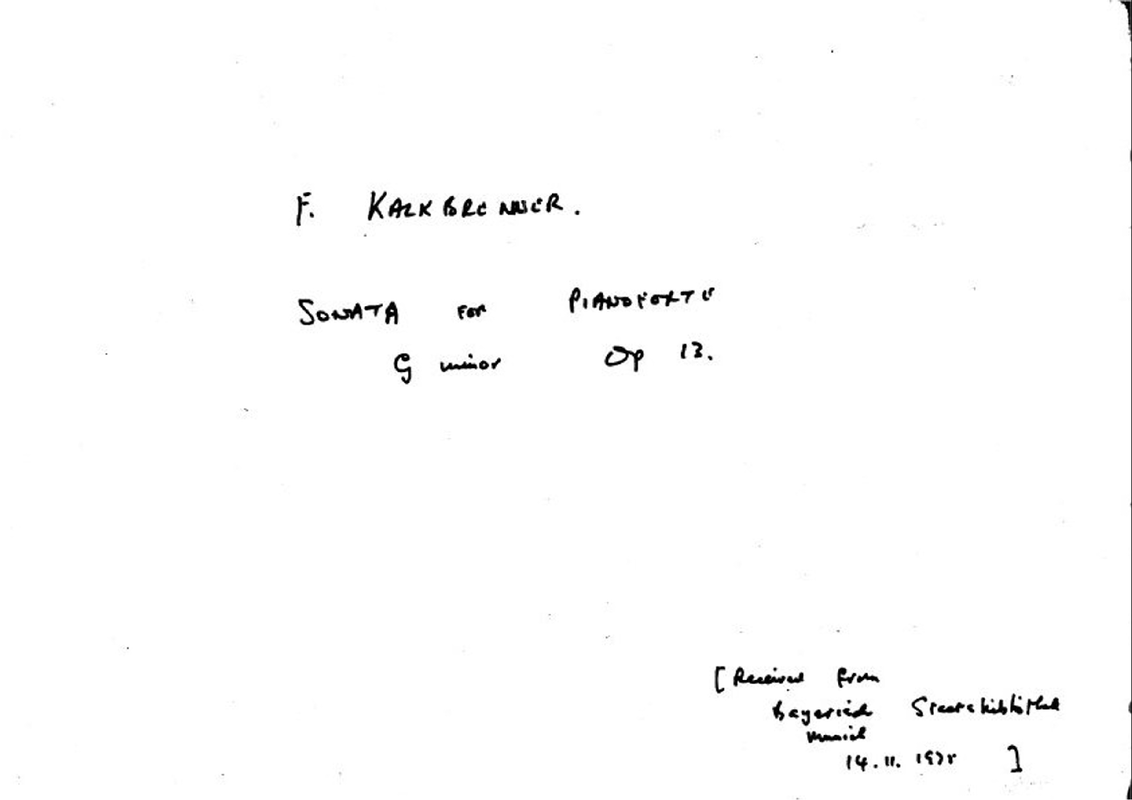 F. KALKBRENNER.
SONATA FOR PIANOFORTE
G minor Op 13.
[Received from
Bayerisch Staatsbibliothek
Munich
14.11. ]